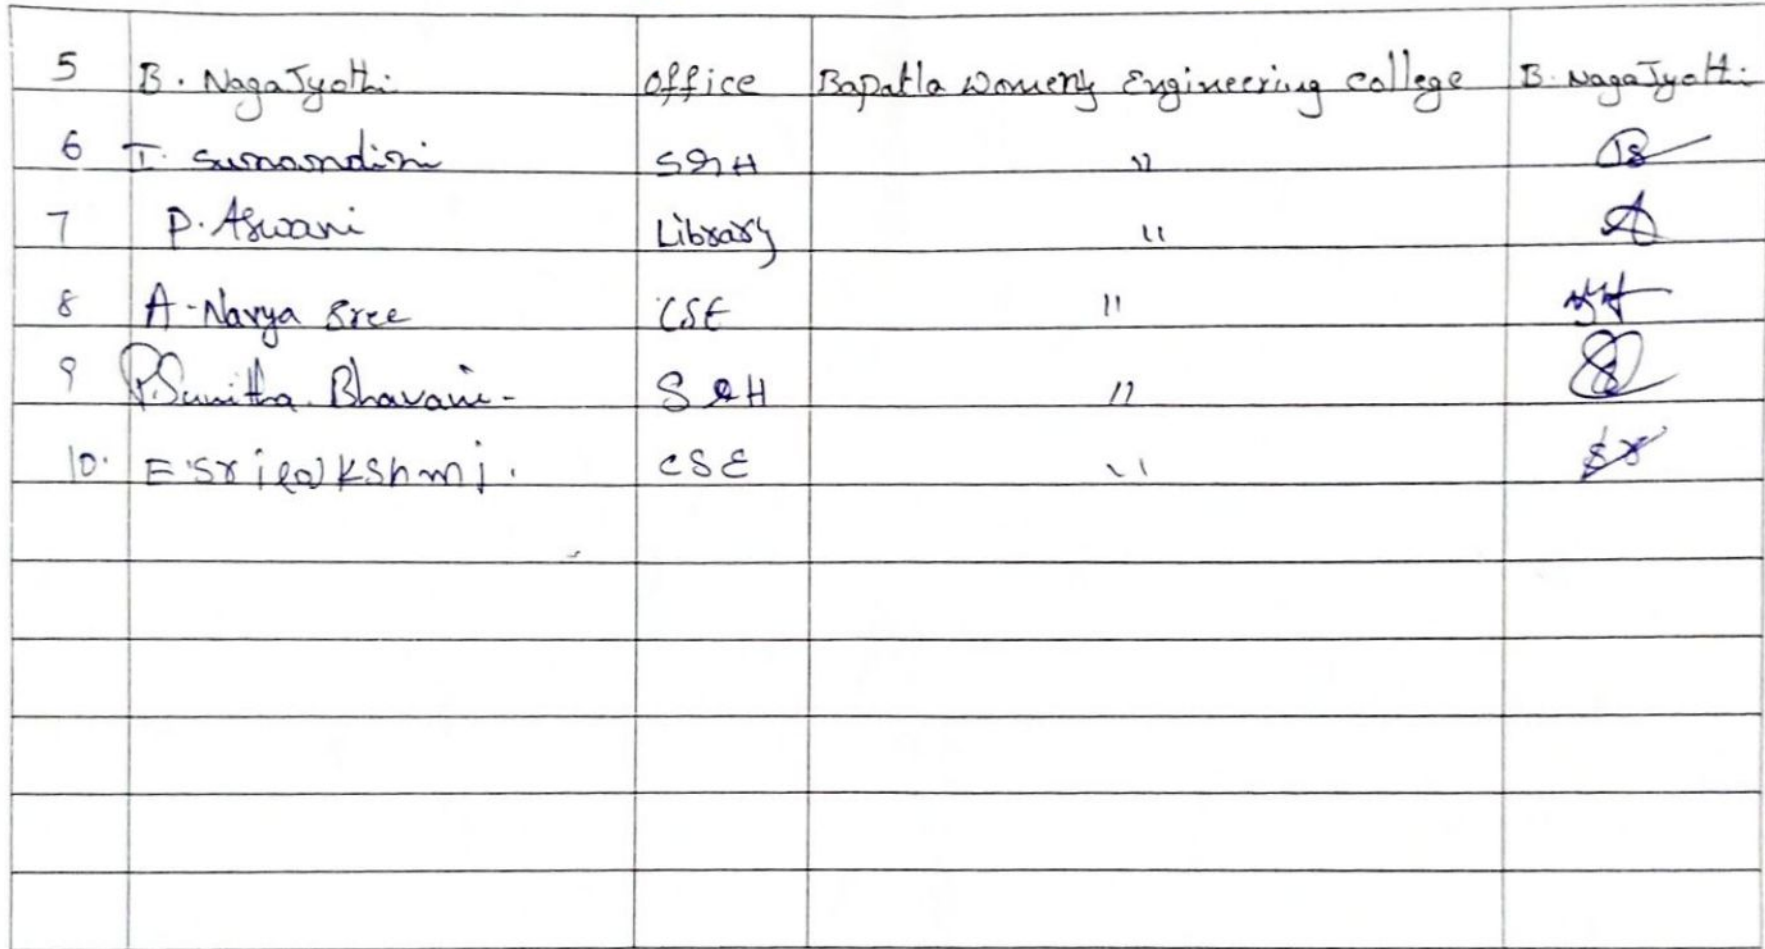 5 B. Naga Jyothi office Bapatla Women's Engineering College B. Naga Jyothi
6 I. Sunandini S&H "
7 P. Aswani Library " A
8 A. Navya Sree CSE "
9 P. Sunitha Bhavani - S&H "
10. E. Srilakshmi. CSE "